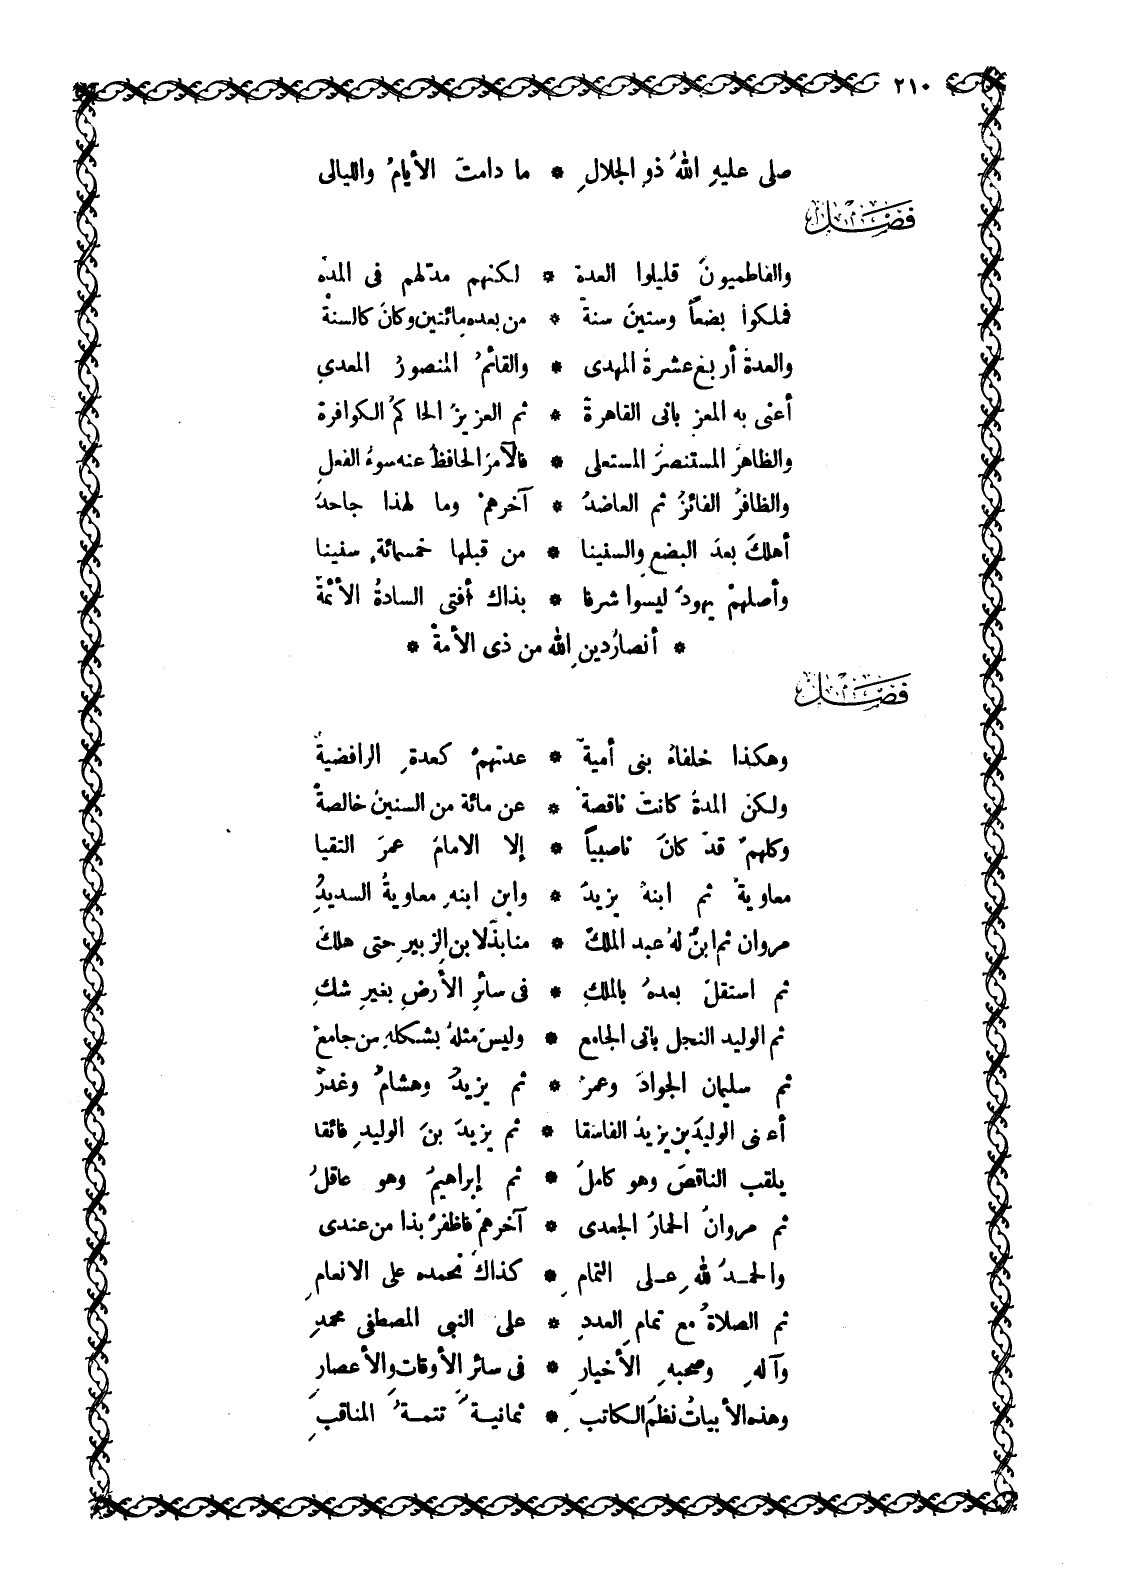 ٢١٠
صلى عليهِ اللهُ ذو الجلالِ * ما دامتَ الأيامُ والليالى
فصل
والفاطميونَ قليلوا العدة * لكنهم مدّلهم فى المدّه
فملكوا بضعاً وستينَ سنةً * من بعده مائتين وكانَ كالسنهْ
والعدةُ أربع عشرةُ المهدى * والقائمُ المنصورُ المعدىِ
أعنى به المعز بانى القاهرةَ * ثم العزيزُ الحاكمُ الكوافرة
والظاهرُ المستنصرُ المستعلى * فالآمرُ الحافظُ عنه سوءُ الفعلِ
والظافرُ الفائزُ ثم العاضدُ * آخرهمْ وما لهذا جاحدُ
أهلكَ بعدَ البضعِ والستينا * من قبلها خمسمائةٍ سنينا
وأصلهمْ يهودٌ ليسوا شرفا * بذاك أفتى السادةُ الأئمةَ
* أنصارُ دينِ الله من ذى الأمةْ *
فصل
وهكذا خلفاءُ بنى أميةَ * عدتهمْ كعدةِ الرافضيةَ
ولكن المدةُ كانتْ ناقصةْ * عن مائة من السنينَ خالصةْ
وكلهمْ قدْ كانَ ناصبياً * إلا الامامَ عمرَ التقيا
معاويةْ ثم ابنهُ يزيدُ * وابن ابنهِ معاويةُ السديدُ
مروان ثم ابنٌ لهُ عبد الملكْ * منابذٌ لابن الزبيرِ حتى هلكْ
ثم استقلَ بعدهُ بالملكِ * فى سائرِ الأرضِ بغيرِ شكِ
ثم الوليد النجل بانى الجامع * وليسَ مثلهُ بشكلهِ من جامعْ
ثم سليمان الجوادَ وعمرْ * ثم يزيدُ وهشامُ وغدرْ
أعنى الوليدَ بن يزيدُ الفاسقا * ثم يزيدَ بنَ الوليدِ فائقا
يلقب الناقصَ وهو كاملُ * ثم إبراهيمُ وهو عاقلُ
ثم مروانُ الحمارُ الجعدى * آخرهمْ فاظفرْ بذا من عندى
والحمدُ للهِ على التمامِ * كذاكَ نحمده على الانعامِ
ثم الصلاةُ مع تمامِ العددِ * على النبى المصطفى محمدِ
وآلهِ وصحبهِ الأخيارِ * فى سائر الأوقات والأعصارِ
وهذه الأبياتُ نظمُ الكاتبِ * ثمانيةً تتمةُ المناقبِ